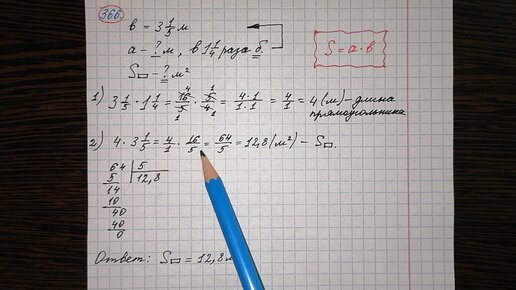 366.
в = 3 1/5 м
а - ? м, в 1 1/4 раза б.
S▭ - ? м²
S = a · в
1) 3 1/5 · 1 1/4 = 16/5 · 5/4 = 4 · 1/1 · 1 = 4/1 = 4 (м) - длина
прямоугольника
2) 4 · 3 1/5 = 4/1 · 16/5 = 64/5 = 12,8 (м²) - S▭.
64 | 5
5 | 12,8
14
10
40
40
0
Ответ: S▭ = 12,8 м